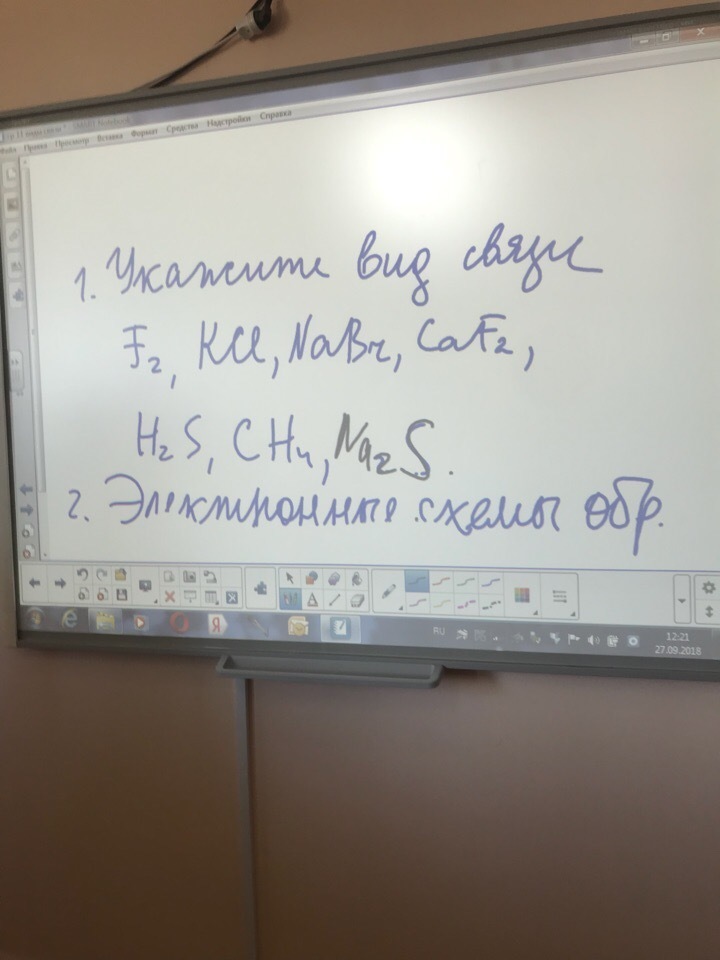 Файл Правка Просмотр Вставка Формат Средства Надстройки Справка
1. Укажите вид связи
F₂, KCl, NaBr, CaF₂,
H₂S, CH₄, Na₂S.
2. Электронные схемы обр.
RU
12:21
27.09.2018